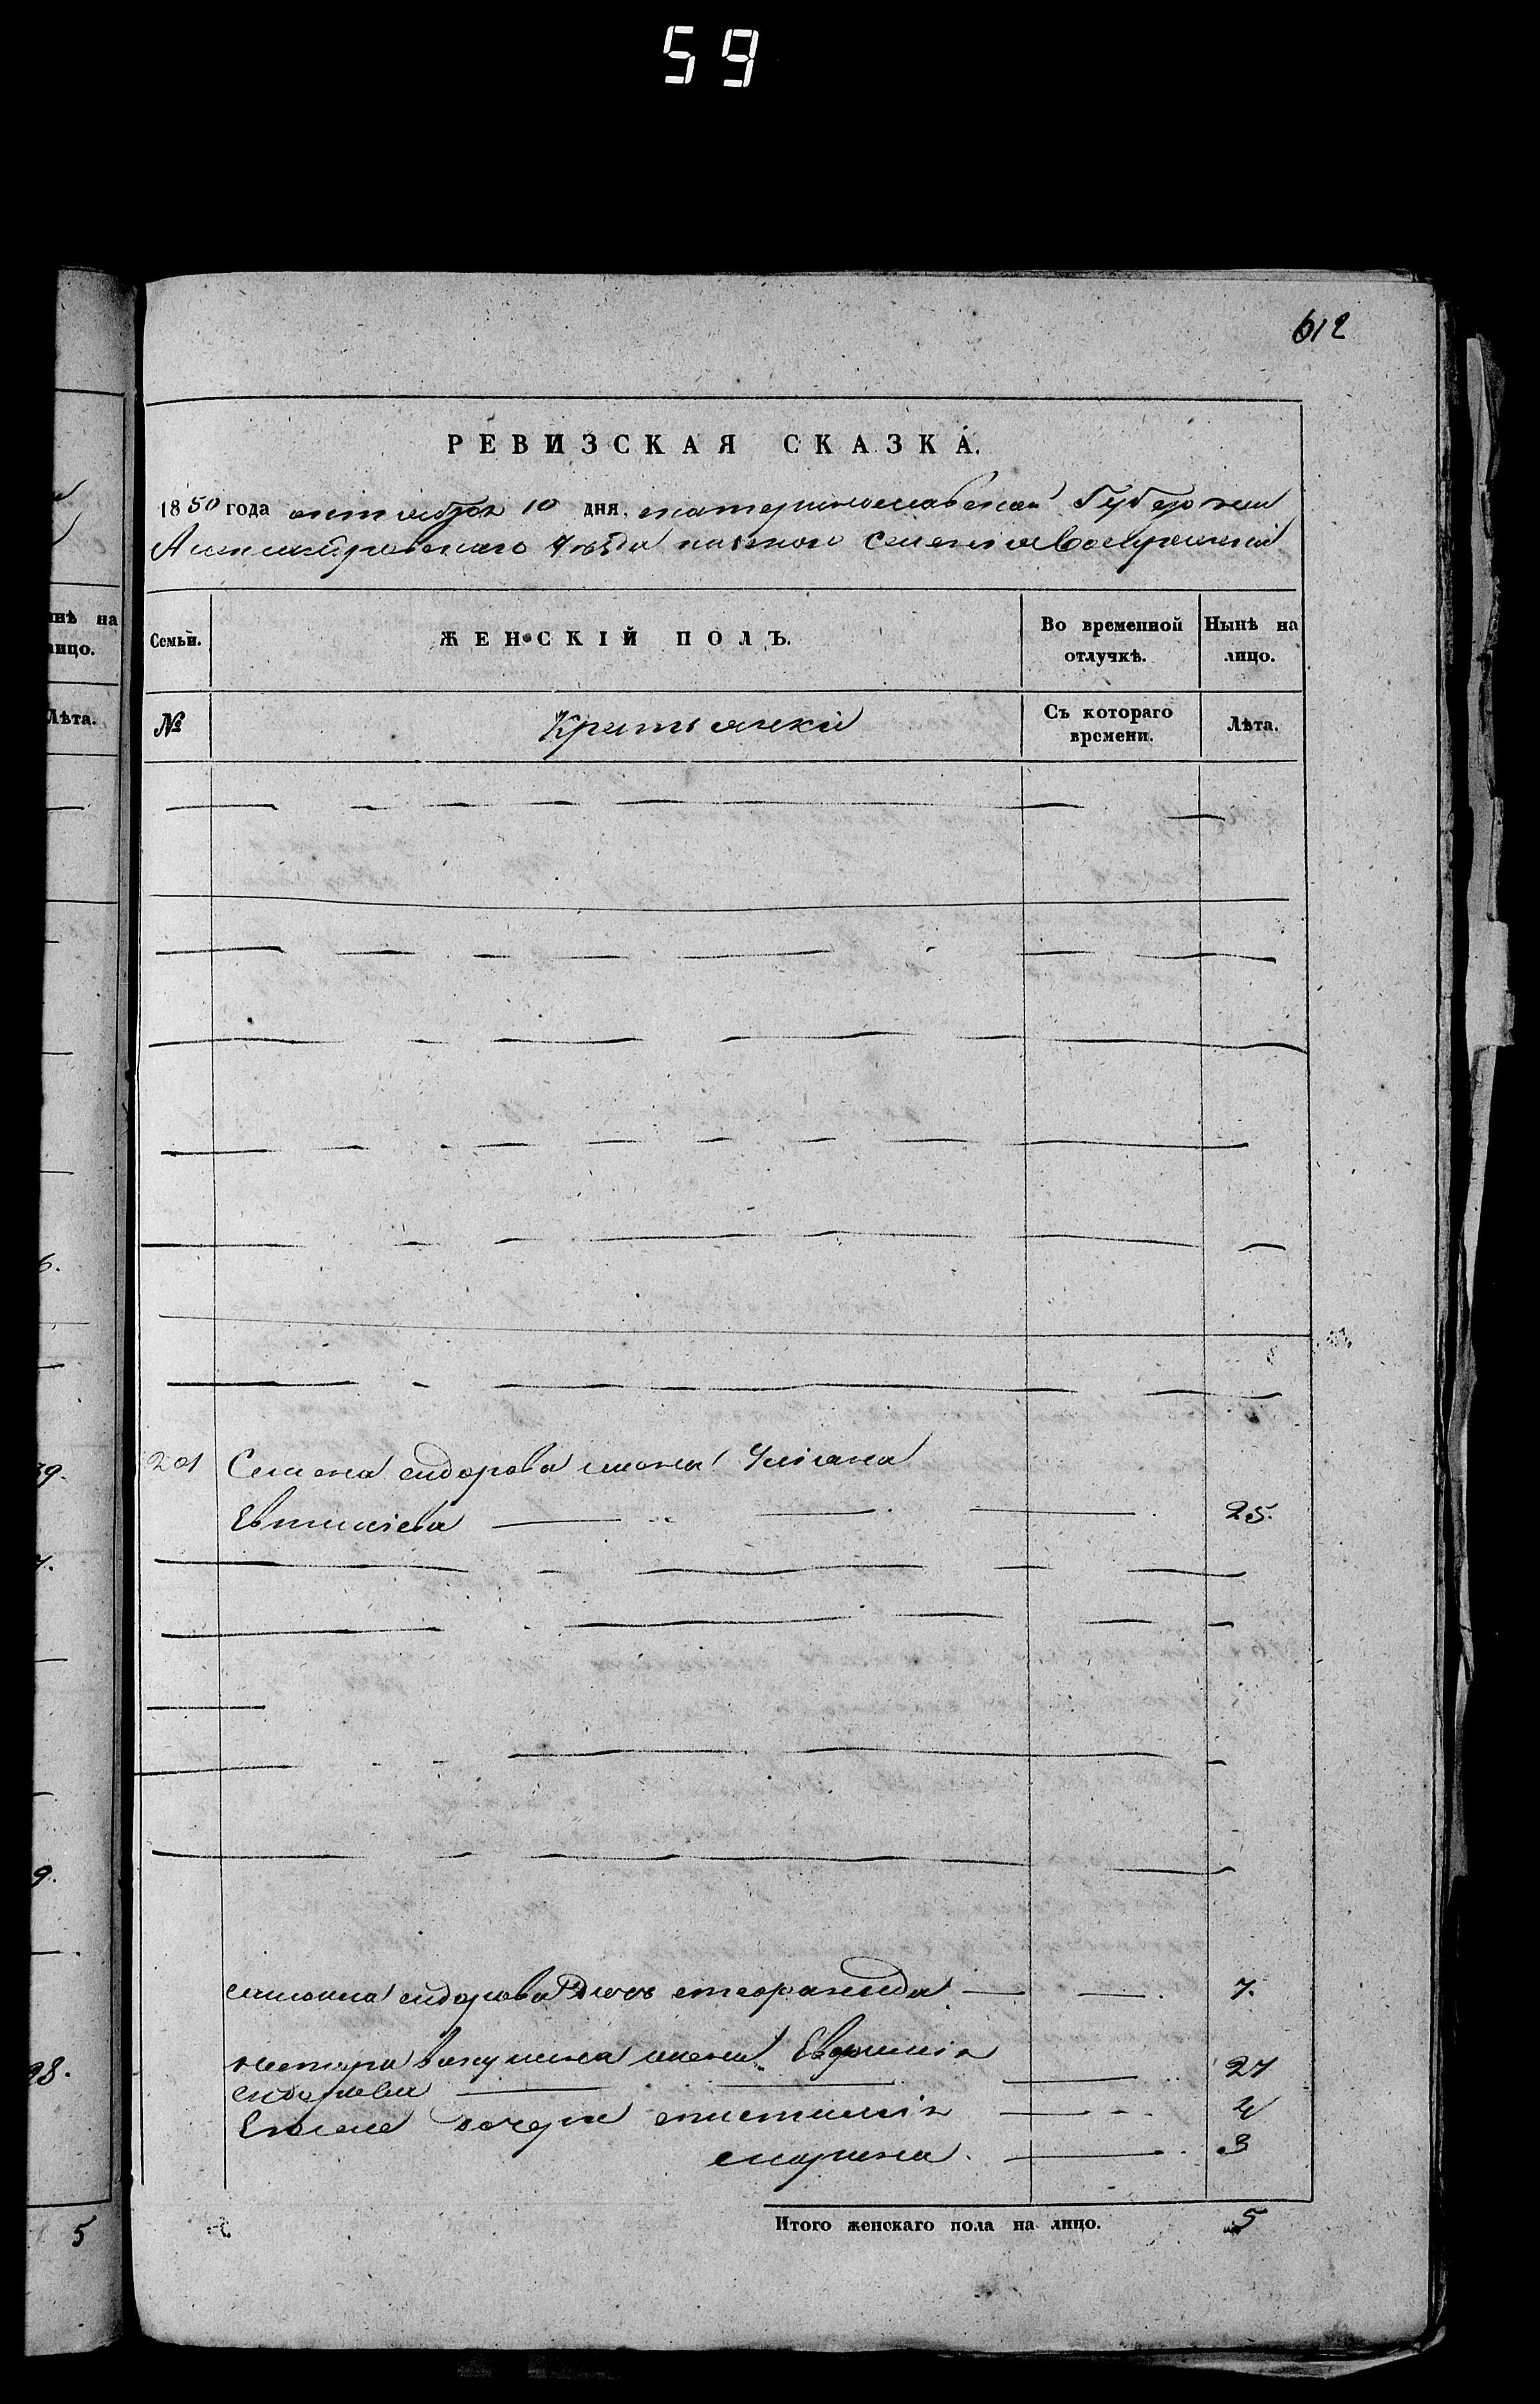 59
612
РЕВИЗСКАЯ СКАЗКА.
1850 года октября 10 дня. екатеринославской Губернии
Александровского уезда казенного селения Воскресенки
Семьи. ЖЕНСКІЙ ПОЛЪ. Во временной отлучкѣ. Нынѣ на лицо.
№ Съ котораго времени. Лѣта.
201 Семена сидорова жена Улiана
Евтихіева 25.
сидорова Дочь 7.
жена Евфимія
сидорова 27
дочери 4
марина. 3
Итого женскаго пола на лицо. 5
нѣ на
лицо.
Лѣта.
6.
9.
28.
5